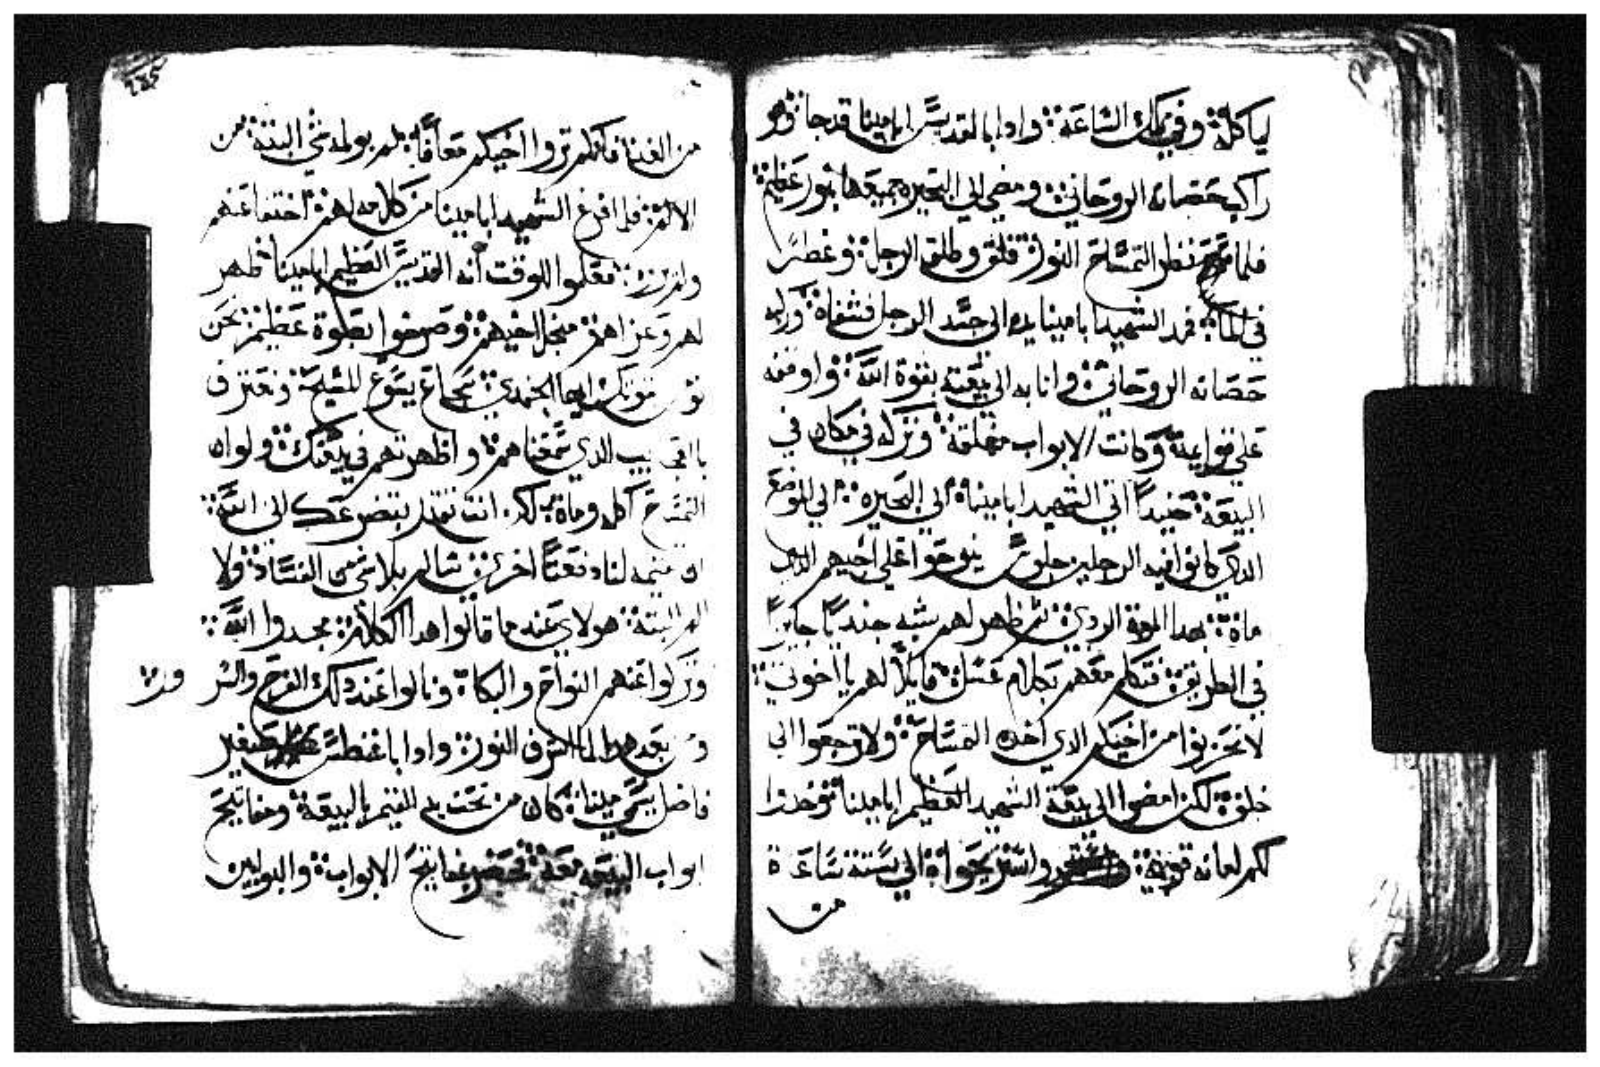 لياكله وفي تلك الساعه وادا بالقديس ابا مينا قد جا وهو
راكب حصانه الروحاني ومضي الي البحيره جميعها بنور عظيم
فلما نظر التمساح النور قلق وطلق الرجل وغطس
في الما فمد الشهيد ابا مينا يده الي جسد الرجل فشفاه وركبه
حصانه الروحاني واتا به الي بيعته بقوة الله واوقفه
علي وكانت الابواب مغلقه وتركه في مكان في
البيعه حنيدا اتي الشهيد ابا مينا الي البحيره الي الموضع
الدي كانوا فيه الرجلين جلوس ينوحوا علي اخيهم الدي
مات بهدا الموته الردي ثم ظهر لهم شبه جنديا جايزا
في الطريق فتكلم معهم بكلام عسل قايلا لهم يا اخوتي
لا تحزنوا من اخيكم الدي اخده التمساح ولا ترجعوا الي
خلف لكن امضوا الي بيعة الشهيد العظيم ابا مينا توخدوا
لكم اعانه قويه واستريحوا الي ستة ساعة
من
من الغد فانكم تروا اخيكم معافا لم يولمه شي البته من
الالم فلما فرغ الشهيد ابا مينا من كلامه لهم اختفا عنهم
ولم فعلموا للوقت انه القديس العظيم ابا مينا ظهر
لهم وعزاهم من اجل اخيهم وصرخوا بصوة عظيم نحن
ايها الجندي شجاع يسوع المسيح ونعترف
الدي سمعناهم واظهرتهم في بيعتك ولو ان
التمساح اكله ومات لكن انت تقدر بتضرعك الي الله
ان تقيمه لنا دفعتا اخري سالم بلا شي من الفساد ولا
الم البته هولاي عند ما قالوا هدا الكلام مجدوا الله
وتركوا عنهم النواح والبكاء ونالوا عند دلك الفرح والسرور
ومن بعد هدا لما اشرق النور وادا باغنطس صغير
فاضل يسمي مينا كان من تحت يد القيم بالبيعه ومفاتيح
ابواب البيعه معه فحضر بمفاتيح الابواب والبوابين